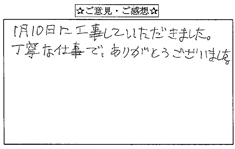 ☆ご意見・ご感想☆
1月10日に工事していただきました。
丁寧な仕事で、ありがとうございました。